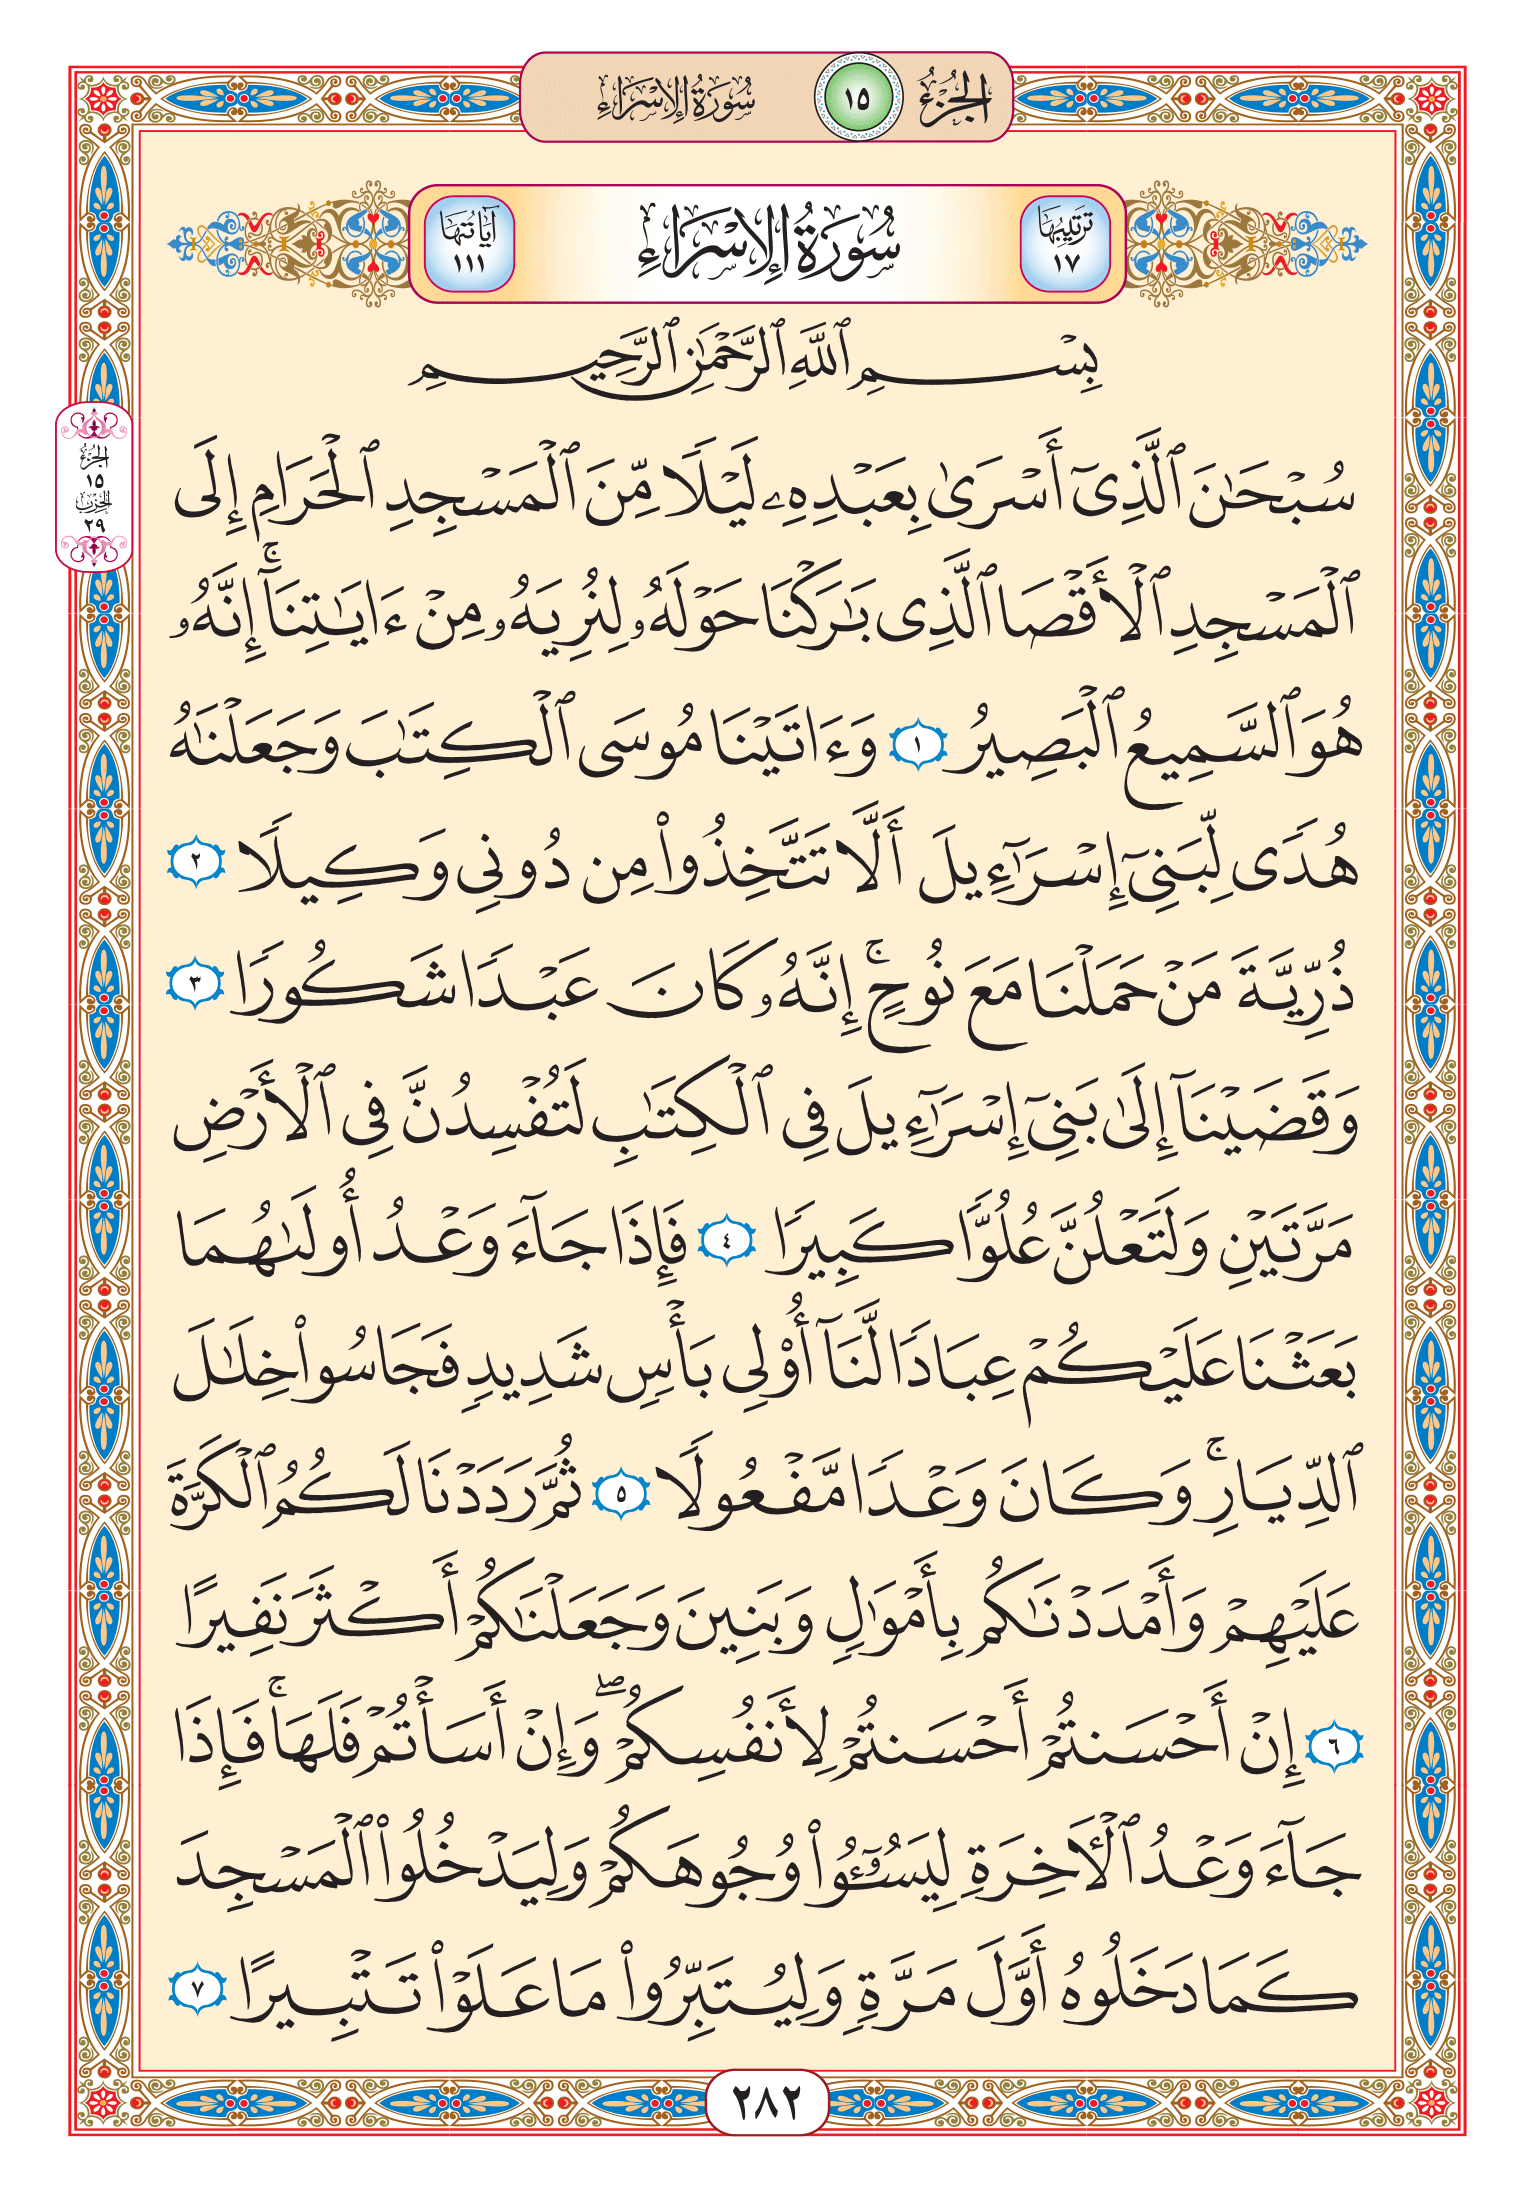 الجزء ١٥ سورة الإسراء
ترتيبها ١٧ سُورَةُ الإِسْرَاءِ آياتها ١١١
بِسْمِ ٱللَّهِ ٱلرَّحْمَٰنِ ٱلرَّحِيمِ
سُبْحَٰنَ ٱلَّذِىٓ أَسْرَىٰ بِعَبْدِهِۦ لَيْلًا مِّنَ ٱلْمَسْجِدِ ٱلْحَرَامِ إِلَى
ٱلْمَسْجِدِ ٱلْأَقْصَا ٱلَّذِى بَٰرَكْنَا حَوْلَهُۥ لِنُرِيَهُۥ مِنْ ءَايَٰتِنَآ ۚ إِنَّهُۥ
هُوَ ٱلسَّمِيعُ ٱلْبَصِيرُ ١ وَءَاتَيْنَا مُوسَى ٱلْكِتَٰبَ وَجَعَلْنَٰهُ
هُدًى لِّبَنِىٓ إِسْرَٰٓءِيلَ أَلَّا تَتَّخِذُوا۟ مِن دُونِى وَكِيلًا ٢
ذُرِّيَّةَ مَنْ حَمَلْنَا مَعَ نُوحٍ ۚ إِنَّهُۥ كَانَ عَبْدًا شَكُورًا ٣
وَقَضَيْنَآ إِلَىٰ بَنِىٓ إِسْرَٰٓءِيلَ فِى ٱلْكِتَٰبِ لَتُفْسِدُنَّ فِى ٱلْأَرْضِ
مَرَّتَيْنِ وَلَتَعْلُنَّ عُلُوًّا كَبِيرًا ٤ فَإِذَا جَآءَ وَعْدُ أُولَىٰهُمَا
بَعَثْنَا عَلَيْكُمْ عِبَادًا لَّنَآ أُو۟لِى بَأْسٍ شَدِيدٍ فَجَاسُوا۟ خِلَٰلَ
ٱلدِّيَارِ ۚ وَكَانَ وَعْدًا مَّفْعُولًا ٥ ثُمَّ رَدَدْنَا لَكُمُ ٱلْكَرَّةَ
عَلَيْهِمْ وَأَمْدَدْنَٰكُم بِأَمْوَٰلٍ وَبَنِينَ وَجَعَلْنَٰكُمْ أَكْثَرَ نَفِيرًا
٦ إِنْ أَحْسَنتُمْ أَحْسَنتُمْ لِأَنفُسِكُمْ ۖ وَإِنْ أَسَأْتُمْ فَلَهَا ۚ فَإِذَا
جَآءَ وَعْدُ ٱلْءَاخِرَةِ لِيَسُـۥٓـُٔوا۟ وُجُوهَكُمْ وَلِيَدْخُلُوا۟ ٱلْمَسْجِدَ
كَمَا دَخَلُوهُ أَوَّلَ مَرَّةٍ وَلِيُتَبِّرُوا۟ مَا عَلَوْا۟ تَتْبِيرًا ٧
الجزء
١٥
الحزب
٢٩
٢٨٢